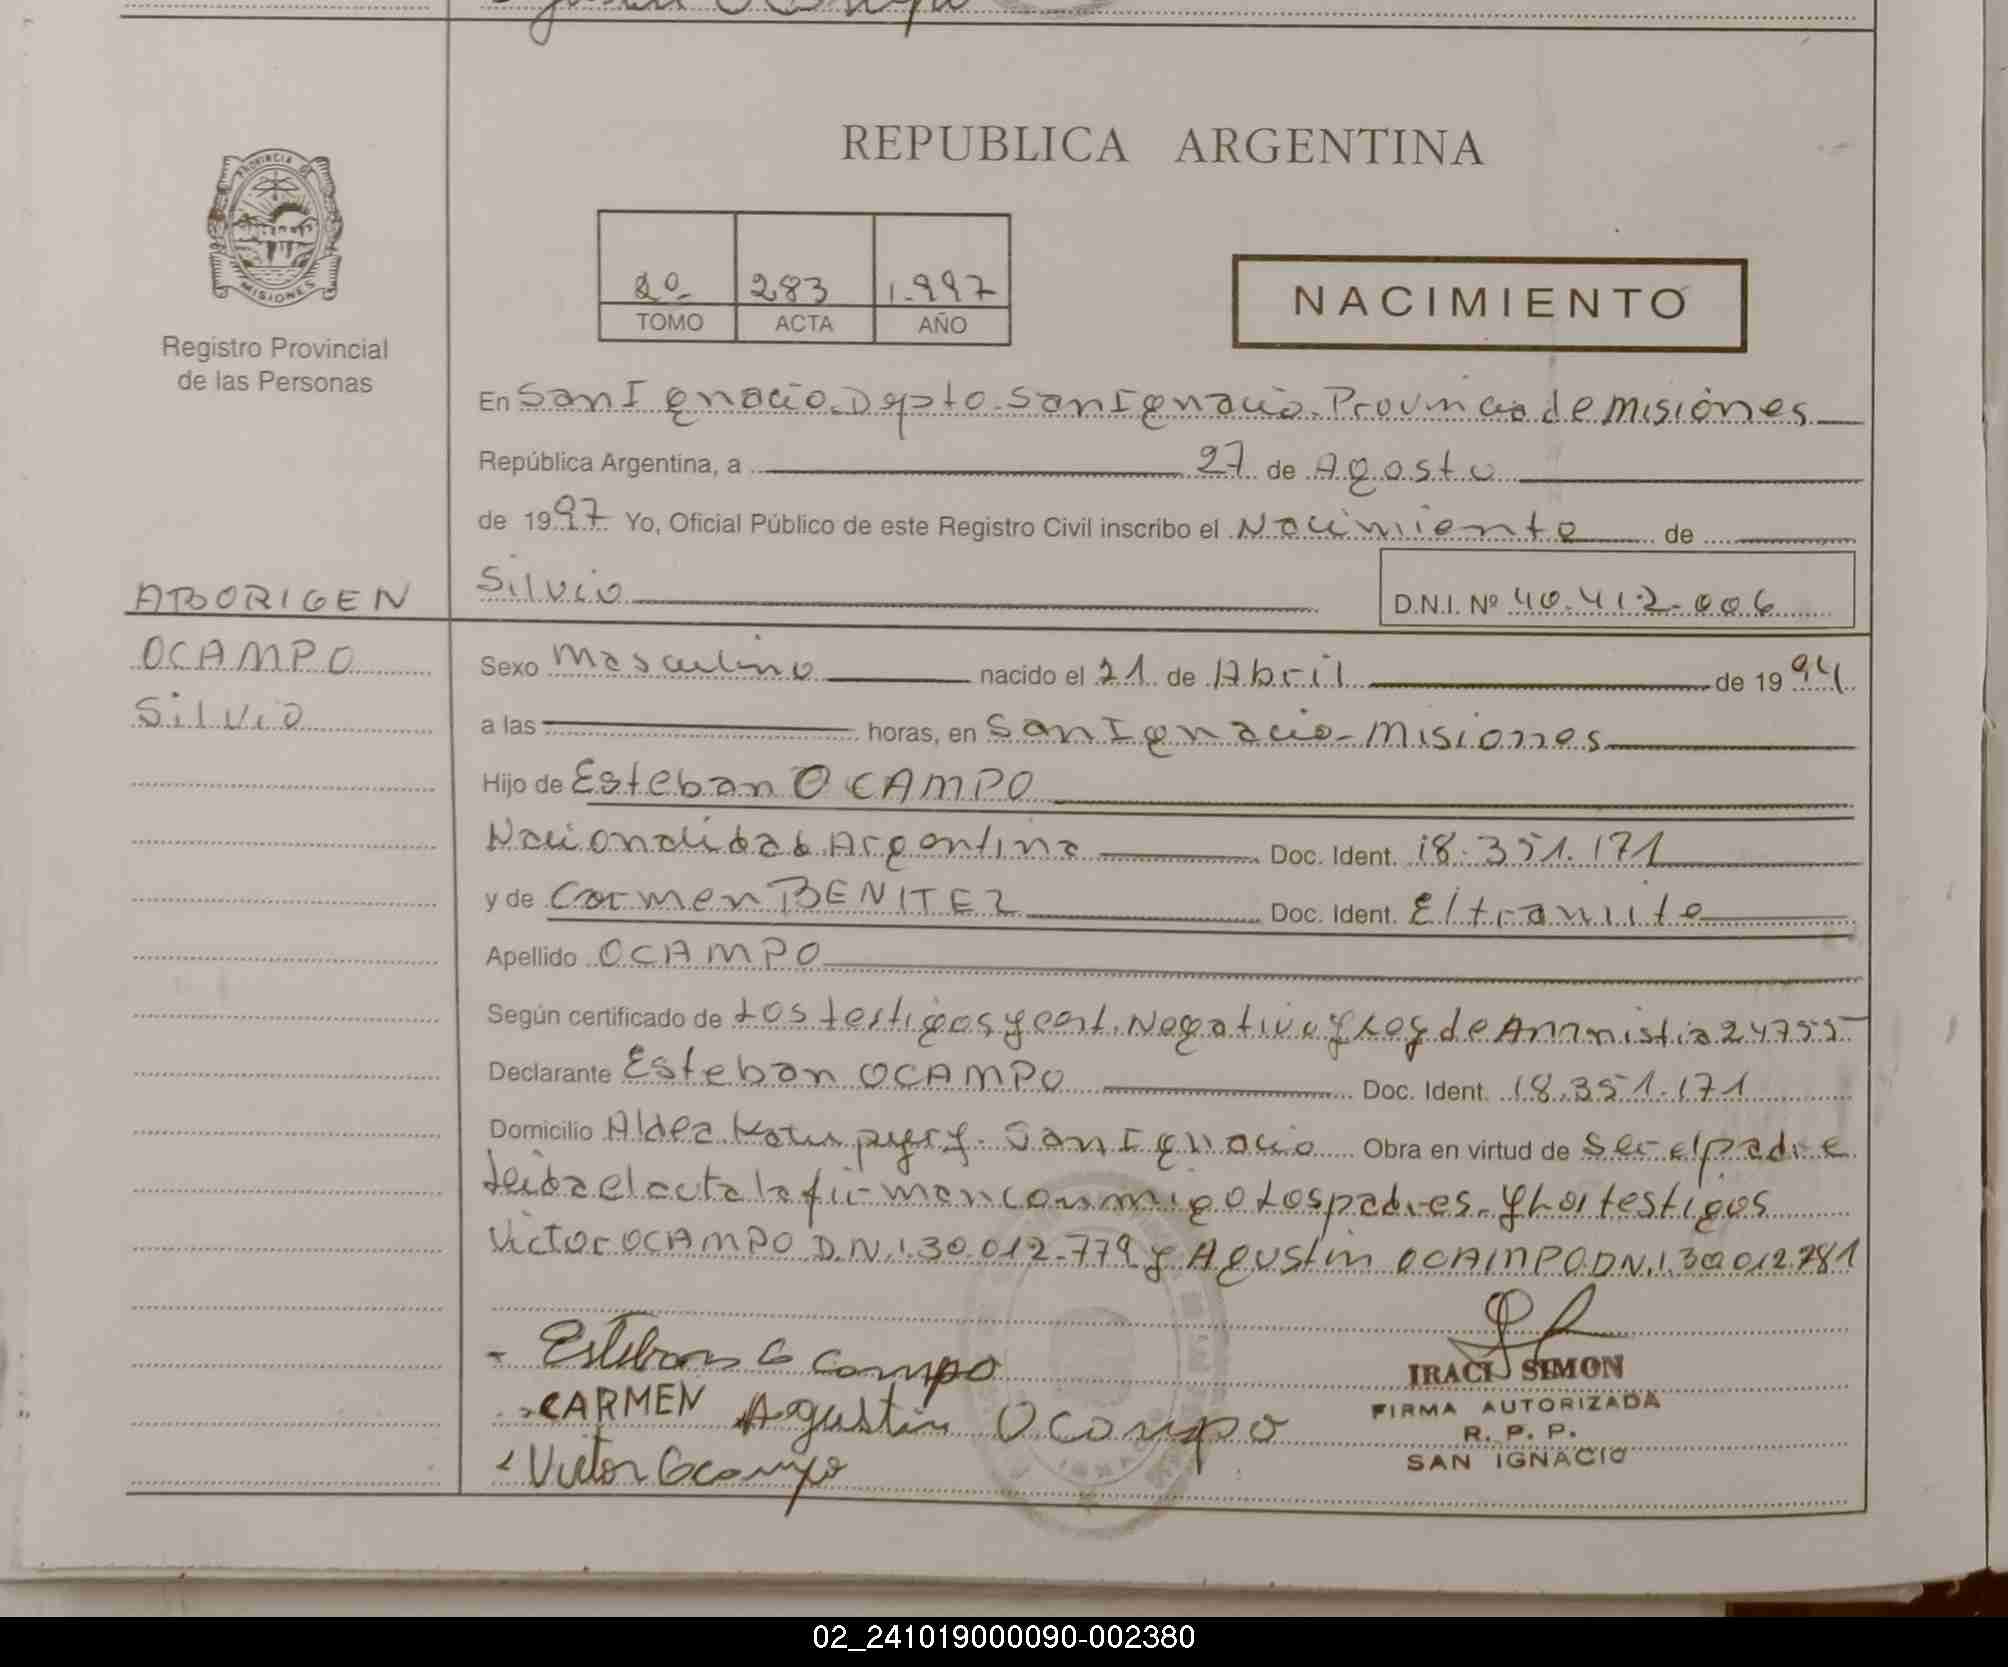 REPUBLICA ARGENTINA
PROVINCIA DE
MISIONES
Registro Provincial
de las Personas
2º 283 1.997
TOMO ACTA AÑO
NACIMIENTO
En San Ignacio. Depto. San Ignacio. Provincia de Misiones
República Argentina, a 27 de Agosto
de 1997 Yo, Oficial Público de este Registro Civil inscribo el Nacimiento de
ABORIGEN
Silvio D.N.I. Nº 40.412.006
OCAMPO
Silvio
Sexo Masculino nacido el 21 de Abril de 1994
a las horas, en San Ignacio - Misiones
Hijo de Esteban OCAMPO
Nacionalidad Argentina Doc. Ident. 18.351.171
y de Carmen BENITEZ Doc. Ident. E/tramite
Apellido OCAMPO
Según certificado de Los testigos y cert. Negativo y Ley de Amnistia 24755
Declarante Esteban OCAMPO Doc. Ident. 18.351.171
Domicilio Aldea San Ignacio Obra en virtud de ser el padre
leida el acta la firman conmigo Los padres. y Los testigos
Victor OCAMPO D.N.I. 30.012.779 y Agustin OCAMPO D.N.I. 30.012.781
Esteban Ocampo
CARMEN Agustin Ocampo
Victor Ocampo
IRACI SIMON
FIRMA AUTORIZADA
R. P. P.
SAN IGNACIO
02_241019000090-002380